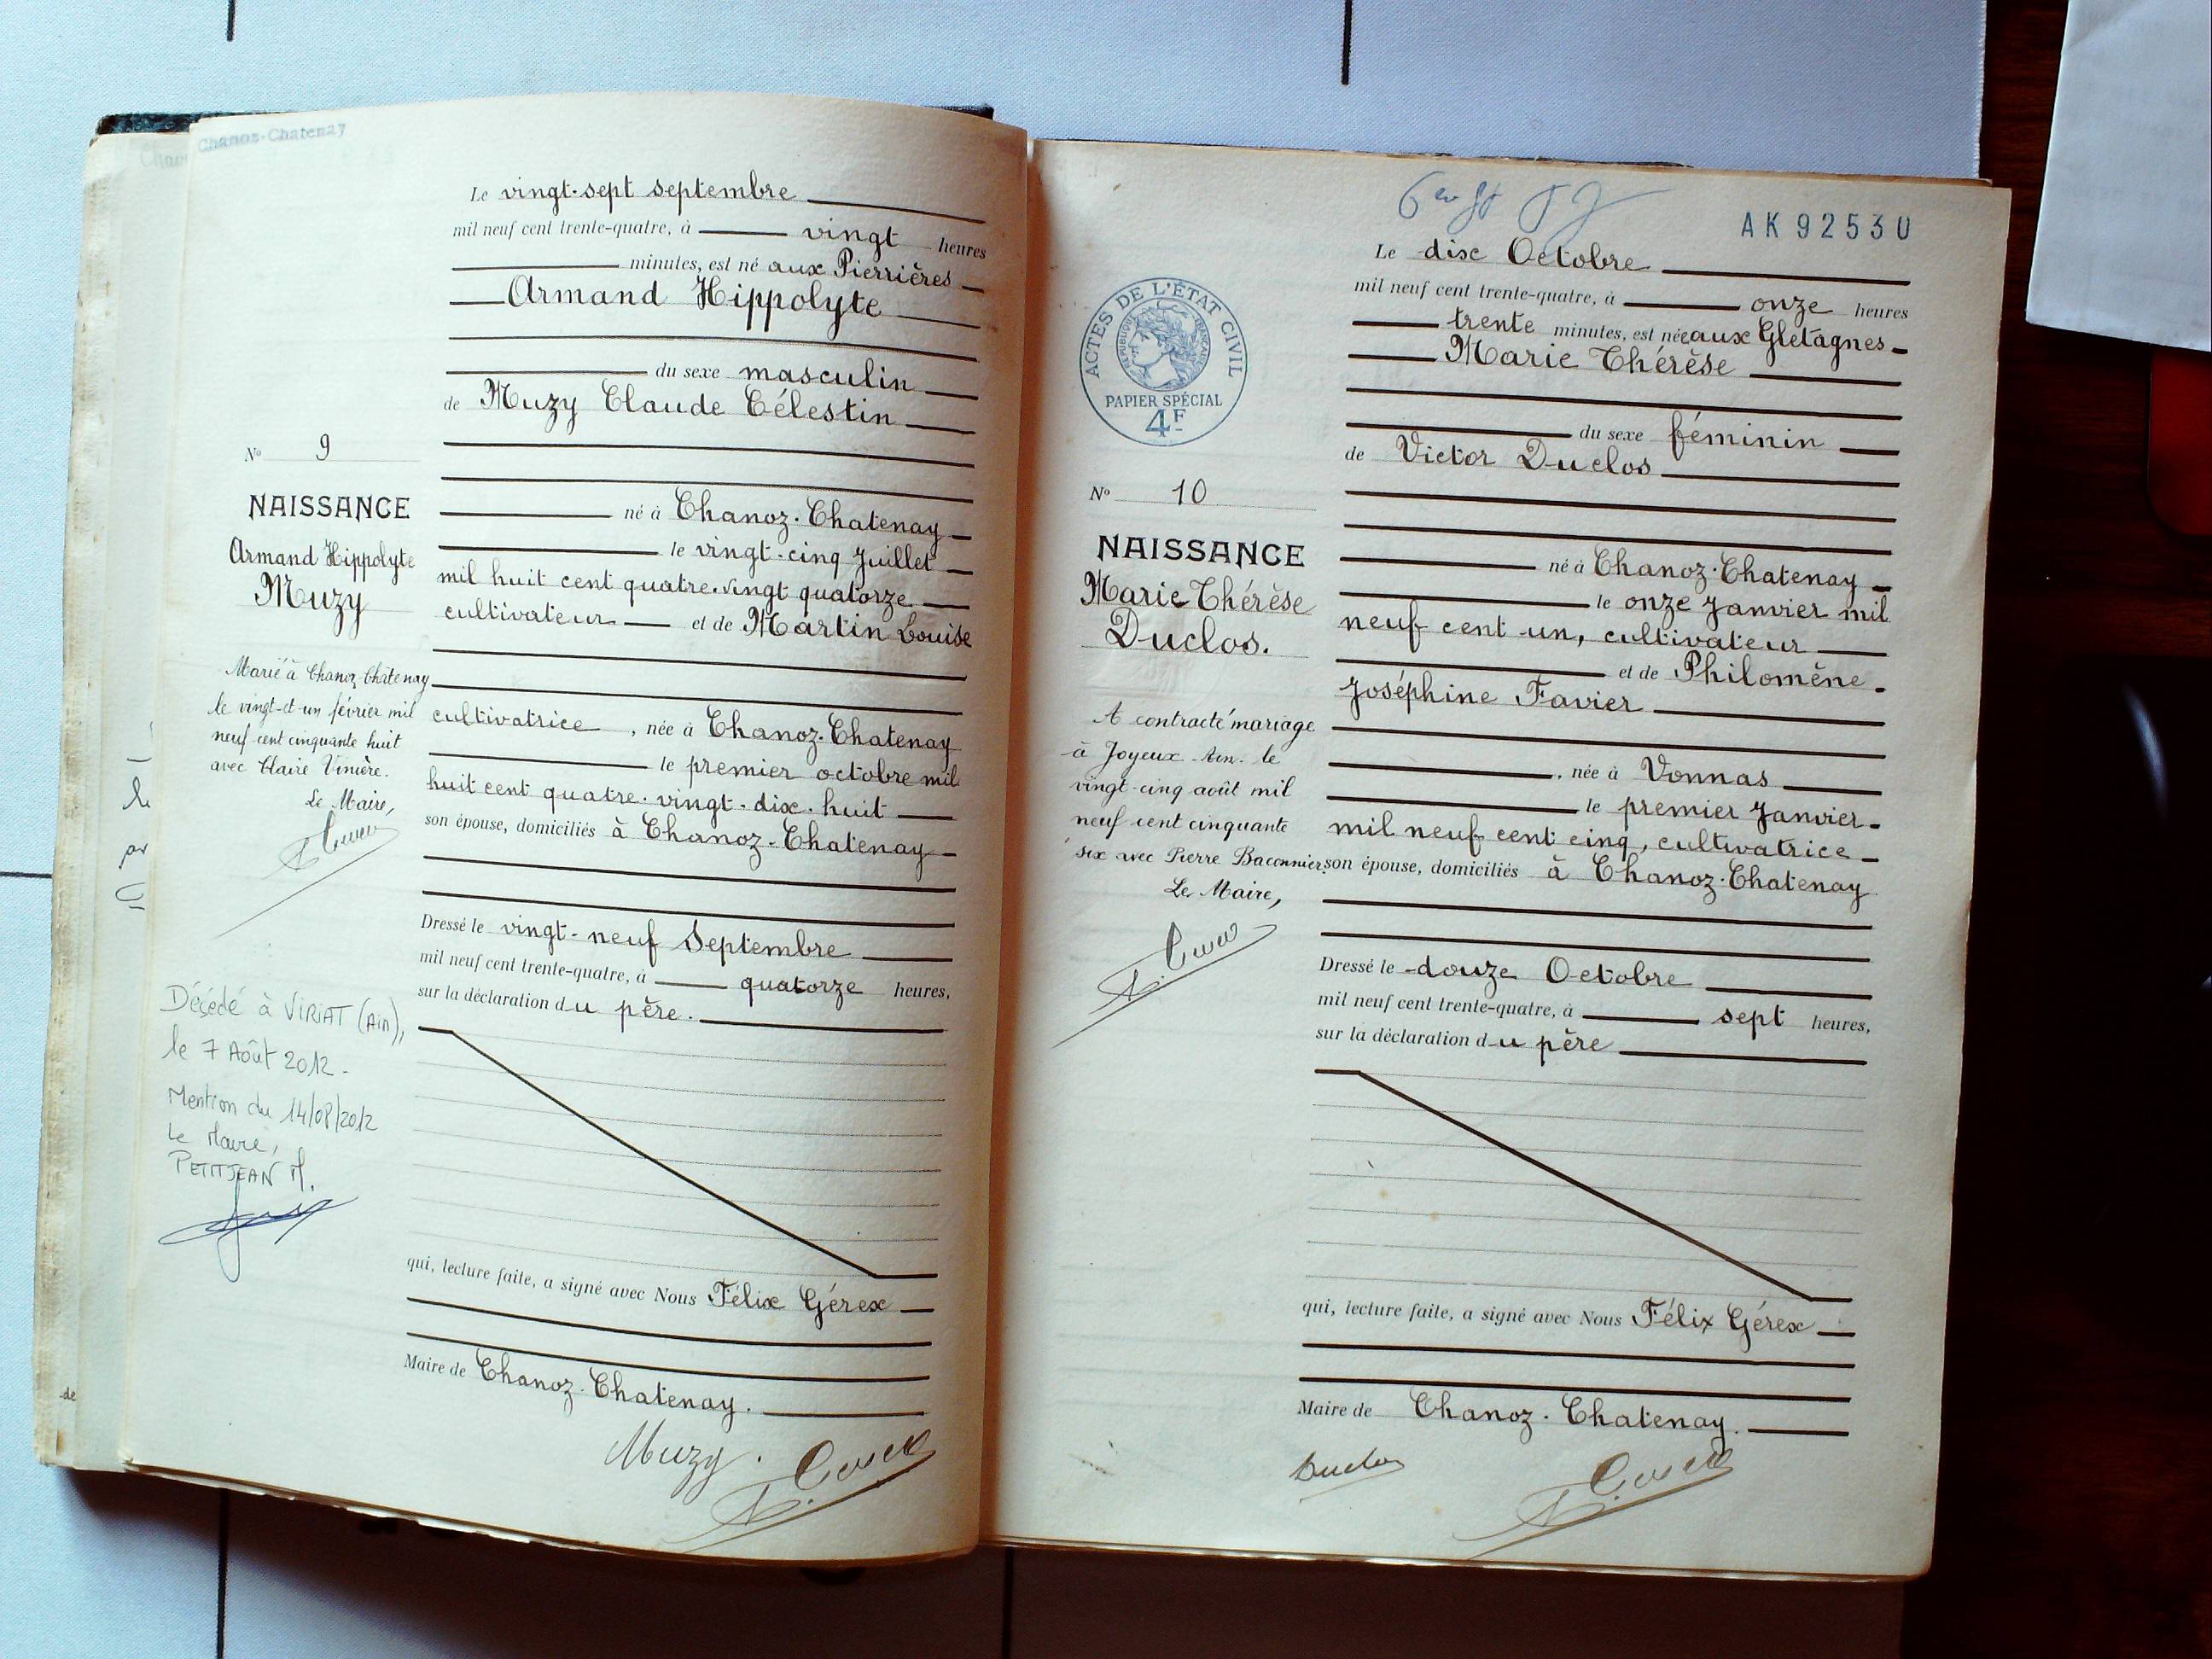 Chanoz-Chatenay
Le vingt-sept septembre
mil neuf cent trente-quatre, à vingt heures
minutes, est né aux Pierrières
Armand Hippolyte
du sexe masculin
de Muzy Claude Célestin
né à Chanoz-Chatenay
le vingt-cinq Juillet
mil huit cent quatre-vingt quatorze
cultivateur et de Martin Louise
cultivatrice, née à Chanoz-Chatenay
le premier octobre mil
huit cent quatre-vingt-dix-huit
son épouse, domiciliés à Chanoz-Chatenay
Dressé le vingt-neuf Septembre
mil neuf cent trente-quatre, à quatorze heures,
sur la déclaration du père.
qui, lecture faite, a signé avec Nous Félix Gérex
Maire de Chanoz-Chatenay.
Muzy.
No 9
NAISSANCE
Armand Hippolyte
Muzy
Marié à Chanoz-Chatenay
le vingt-et-un février mil
neuf cent cinquante huit
avec Claire Vinière.
Le Maire,
Décédé à VIRIAT (Ain),
le 7 Août 2012.
Mention du 14/08/2012
Le Maire,
PETITJEAN M.
AK92530
Le dix Octobre
mil neuf cent trente-quatre, à onze heures
trente minutes, est née aux Gletagnes
Marie Thérèse
du sexe féminin
de Victor Duclos
né à Chanoz-Chatenay
le onze Janvier mil
neuf cent un, cultivateur
et de Philomène
Joséphine Favier
, née à Vonnas
le premier Janvier
mil neuf cent cinq, cultivatrice
son épouse, domiciliés à Chanoz-Chatenay
Dressé le douze Octobre
mil neuf cent trente-quatre, à sept heures,
sur la déclaration du père
qui, lecture faite, a signé avec Nous Félix Gérex
Maire de Chanoz-Chatenay.
Duclos
ACTES DE L'ÉTAT CIVIL
RÉPUBLIQUE FRANÇAISE
PAPIER SPÉCIAL
4F
No 10
NAISSANCE
Marie Thérèse
Duclos.
A contracté mariage
à Joyeux Ain. le
vingt-cinq août mil
neuf cent cinquante
six avec Pierre Baconnier.
Le Maire,